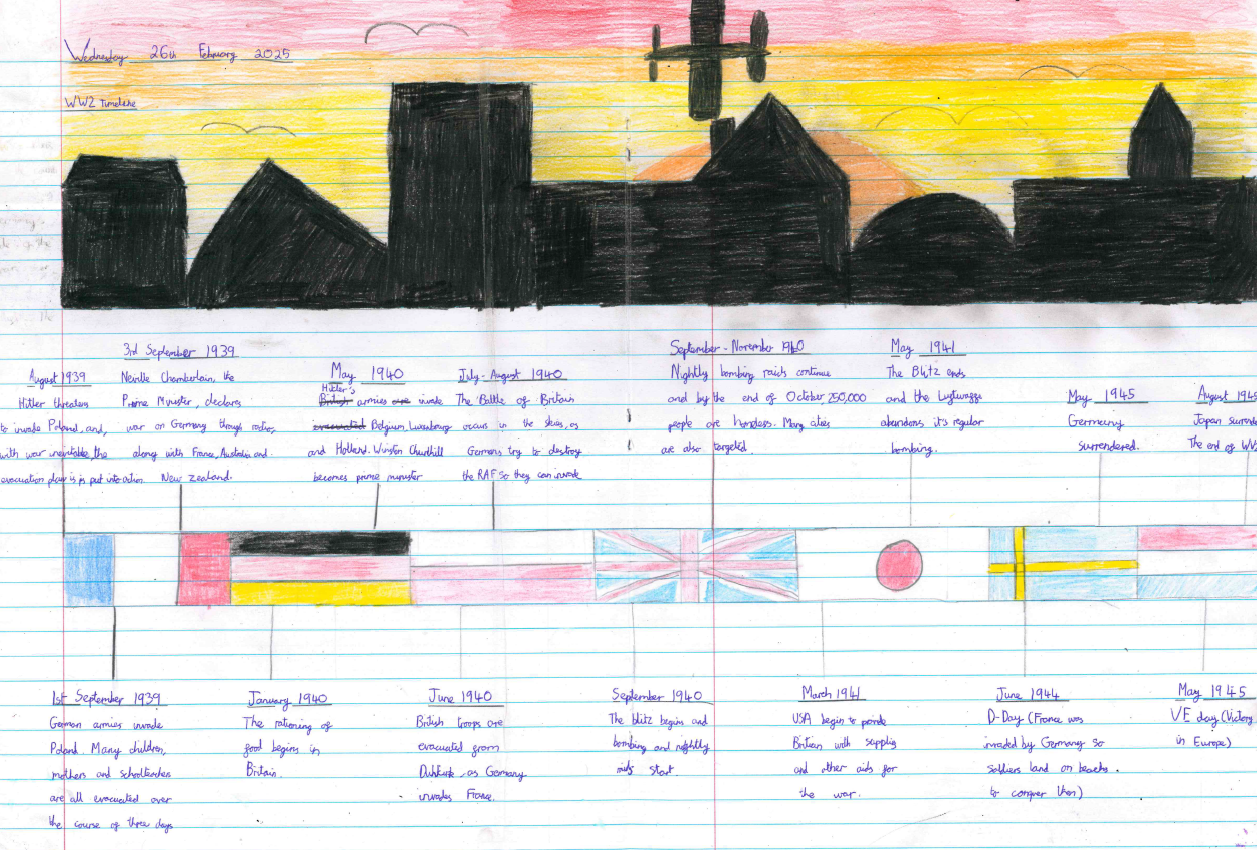 Wednesday 26th February 2025
WW2 Timeline
August 1939
Hitler threatens
to invade Poland, and,
with war inevitable, the
evacuation plan is is put into action.
3rd September 1939
Neville Chamberlain, the
Prime Minister, declares
war on Germany through
along with France, Australia and
New Zealand.
May 1940
Hitler's
British armies are invade
evacuated Belgium, Luxembourg
and Holland. Winston Churchill
becomes prime minister
July - August 1940
The Battle of Britain
occurs in the skies, as
Germans try to destroy
the RAF so they can invade
September - November 1940
Nightly bombing raids continue
and by the end of October 250,000
people are homeless. Many cities
are also targeted.
May 1941
The Blitz ends
and the Luftwaffe
abandons it's regular
bombing.
May 1945
Germany
surrendered.
August 1945
Japan
The end of
1st September 1939
German armies invade
Poland. Many children,
mothers and
are all evacuated over
the course of three days
January 1940
The rationing of
food begins in
Britain.
June 1940
British troops are
evacuated from
Dunkirk as Germany
invades France.
September 1940
The blitz begins and
bombing and nightly
raids start
March 1941
USA begin to
with
and other aids for
the war.
June 1944
D-Day (France was
invaded by Germany so
soldiers land on beachs.
to conquer them)
May 1945
VE day (Victory
in Europe)